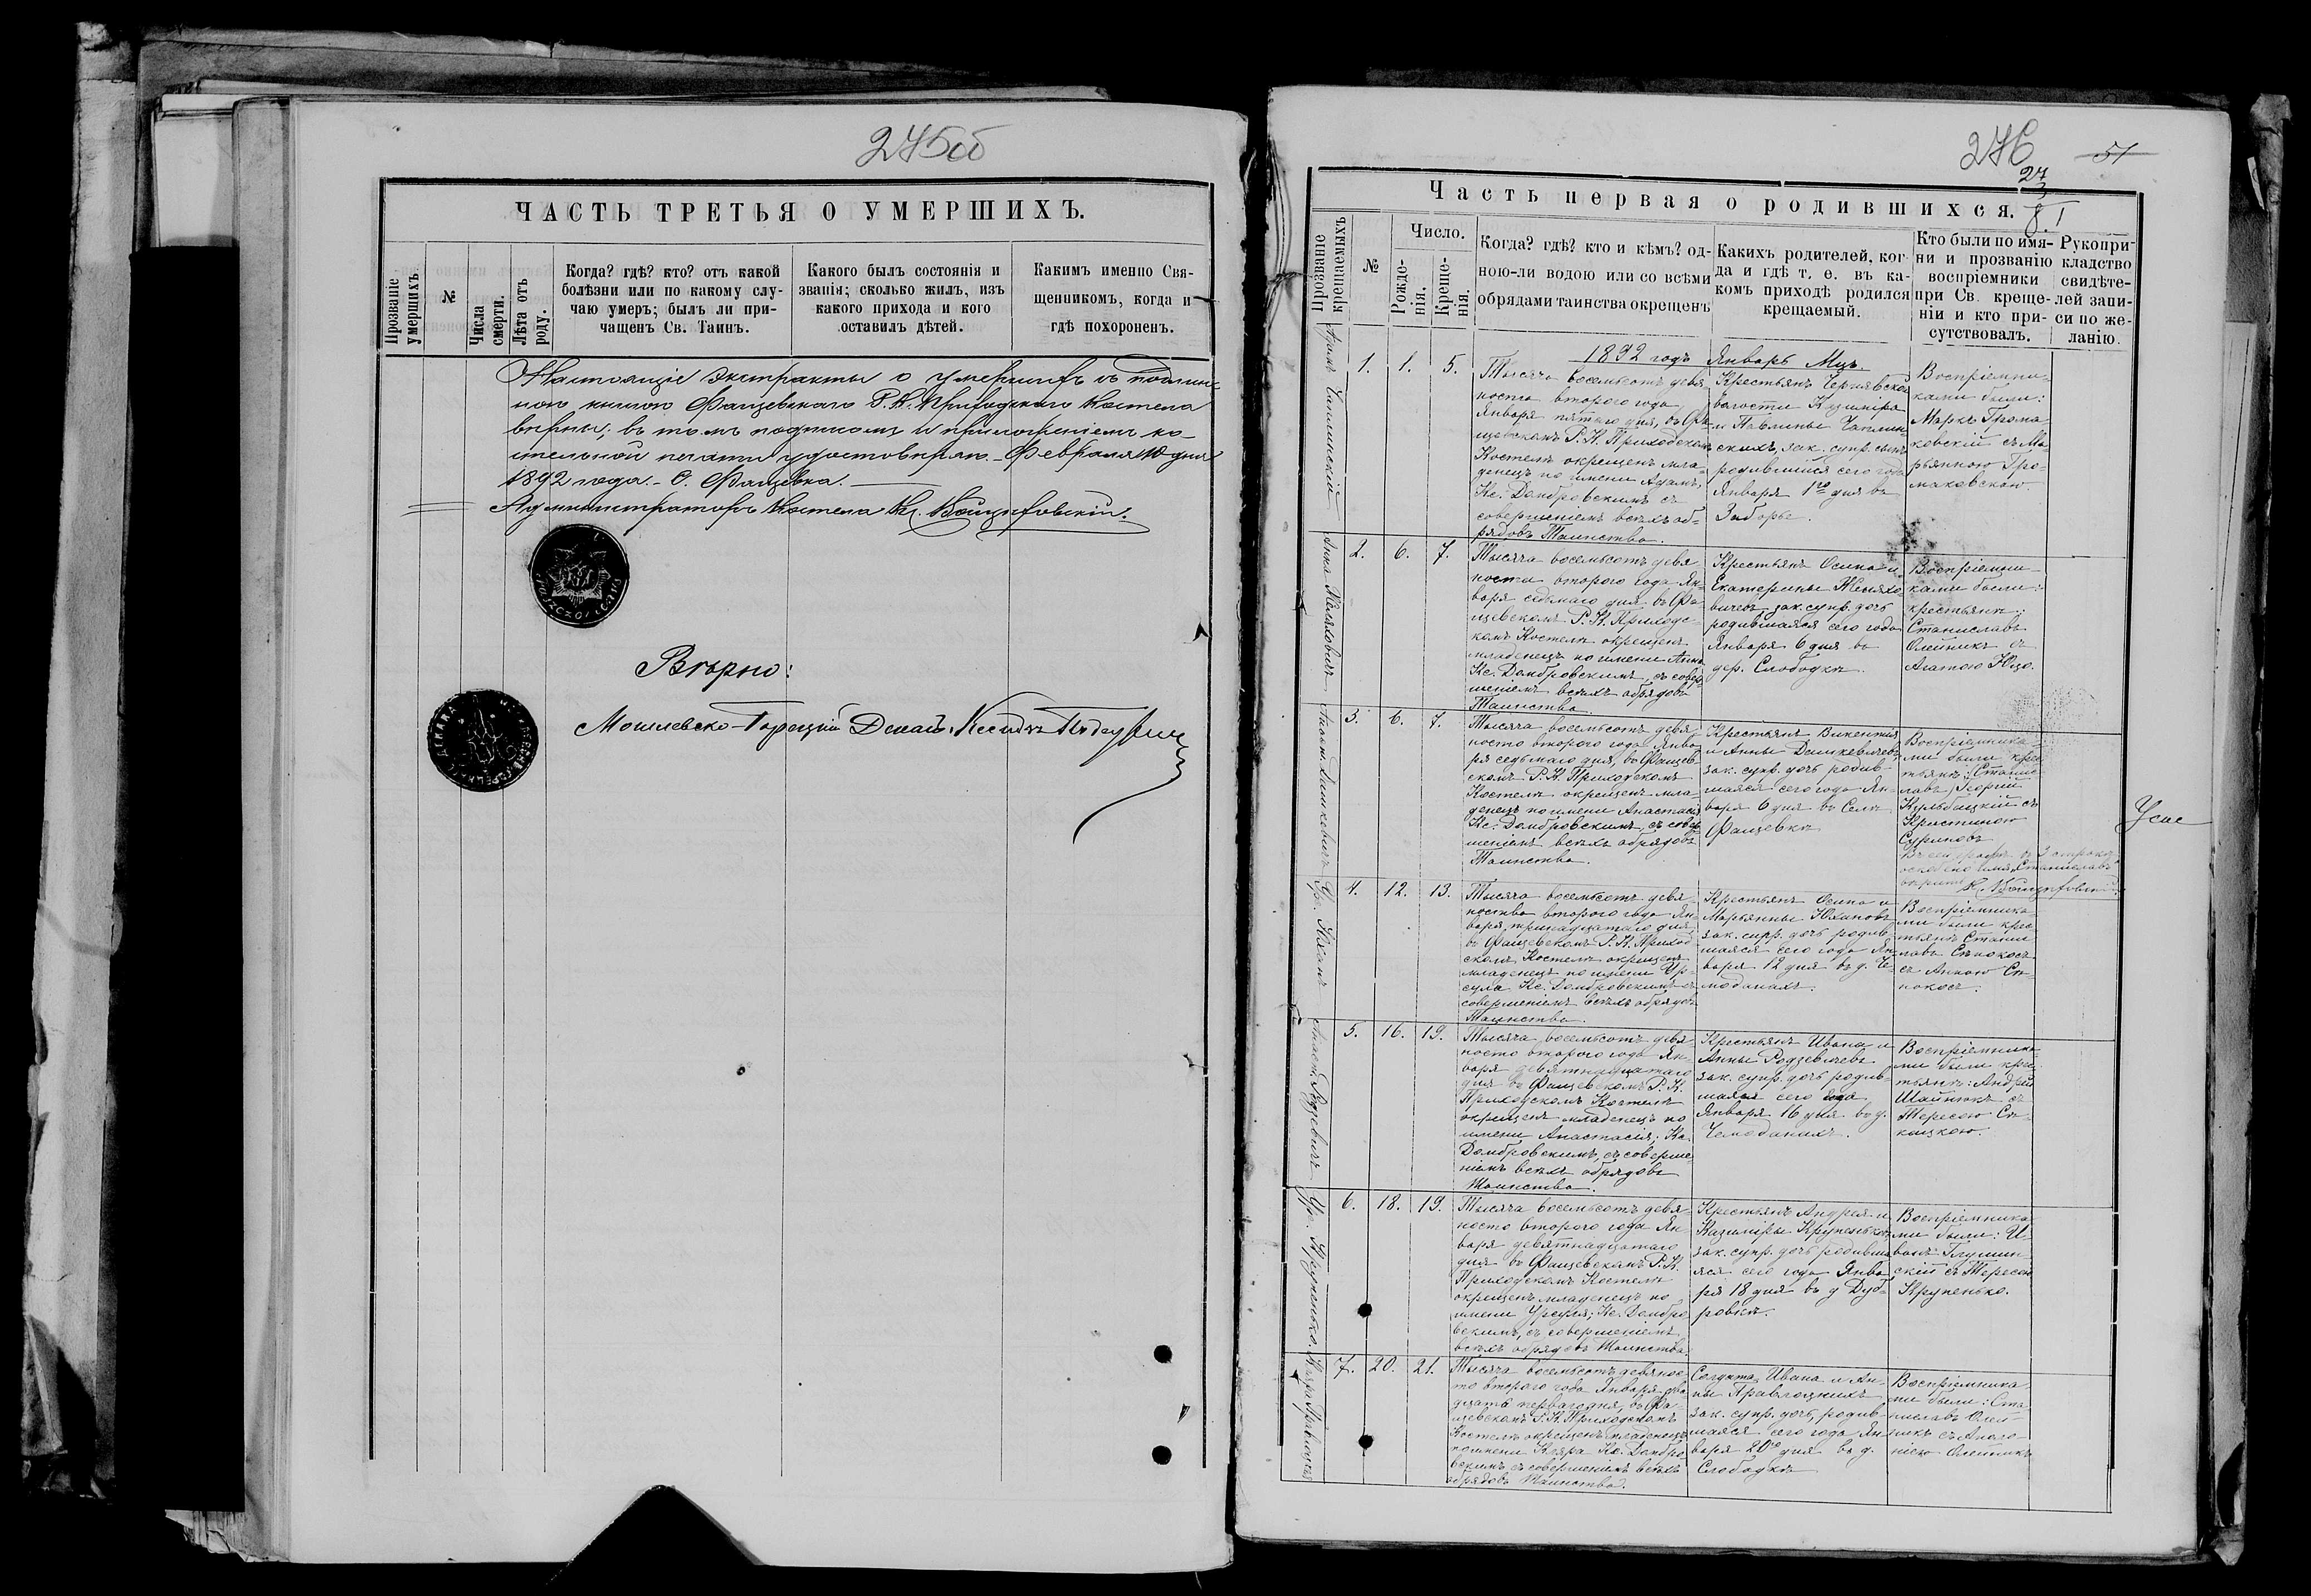 275об
ЧАСТЬ ТРЕТЬЯ О УМЕРШИХЪ.
Прозваніе умершихъ
№
Числа смерти.
Лѣта отъ роду.
Когда? гдѣ? кто? отъ какой
болѣзни или по какому слу-
чаю умеръ; былъ ли при-
чащенъ Св. Таинъ.
Какого былъ состоянія и
званія; сколько жилъ, изъ
какого прихода и кого
оставилъ дѣтей.
Какимъ именно Свя-
щенникомъ, когда и
гдѣ похороненъ.
Настоящіе экстракты о умершихъ съ подлин-
ною книгою Фащевскаго Р. К. Приходскаго Костела
вѣрны; въ томъ подписомъ и приложеніемъ ко-
стельной печати удостовѣряю. Февраля 10 дня
1892 года. С. Фащевка.
Администраторъ Костела Кс.
Вѣрно:
Могилевско-Горецкій Деканъ, Ксендзъ
276
51
27
3
Часть первая о родившихся.
8. I
Прозваніе крещаемыхъ
№
Число.
Рожде-
нія.
Креще-
нія.
Когда? гдѣ? кто и кѣмъ? од-
ною-ли водою или со всѣми
обрядами таинства окрещенъ
Какихъ родителей, ког-
да и гдѣ т. е. въ ка-
комъ приходѣ родился
крещаемый.
Кто были по имя-
ни и прозванію
воспріемники
при Св. креще-
ніи и кто при-
сутствовалъ.
Рукопри-
кладство
свидѣте-
лей запи-
си по же-
ланію.
1892 годъ Январь Мцъ.
Адамъ Чаплинскій
1. 1. 5.
Тысяча восемьсотъ девя-
носто второго года
Января пятаго дня, въ Фа-
щевскомъ Р. К. Приходскомъ
Костелѣ окрещенъ мла-
денецъ по имени Адамъ,
Кс. Домбровскимъ съ
совершеніемъ всѣхъ об-
рядовъ Таинства.
Крестьянъ Чернявской
волости Казиміра
и Павлины Чаплин-
скихъ, зак. супр. сынъ
родившійся сего года
Января 1го дня въ
Заборье.
Воспріемни-
ками были:
Маркъ Грома-
ковскій съ Ма-
рьянною Гро-
маковскою.
Анна
2. 6. 7.
Тысяча восемьсотъ девя-
носто второго года Ян-
варя седьмаго дня въ Фа-
щевскомъ Р. К. Приходс-
комъ Костелѣ окрещенъ
младенецъ по имени Анна
Кс. Домбровскимъ, съ совер-
шеніемъ всѣхъ обрядовъ
Таинства.
Крестьянъ Осипа и
Екатерины
зак. супр. дочь
родившаяся сего года
Января 6 дня въ
дер. Слободкѣ.
Воспріемни-
ками были:
крестьянъ:
Станиславъ
Олейникъ съ
Агатою
Анаст. Дашкевичъ
3. 6. 7.
Тысяча восемьсотъ девя-
носто второго года Янва-
ря седьмаго дня, въ Фащев-
скомъ Р. К. Приходскомъ
Костелѣ окрещенъ мла-
денецъ по имени Анастасія
Кс. Домбровскимъ, съ совер-
шеніемъ всѣхъ обрядовъ
Таинства.
Крестьянъ Викентія
и Анны Дашкевичевъ
зак. супр. дочь родив-
шаяся сего года Ян-
варя 6 дня въ Селѣ
Фащевкѣ
Воспріемника-
ми были крес-
тьянъ: Станис-
лавъ Георгій
Кульбацкій съ
Кристиною
Ур. Юхановъ
4. 12. 13.
Тысяча восемьсотъ девя-
носто второго года Ян-
варя, тринадцатаго дня,
въ Фащевскомъ Р. К. Приход-
скомъ Костелѣ окрещенъ
младенецъ по имени Ур-
сула Кс. Домбровскимъ съ
совершеніемъ всѣхъ обрядовъ
Таинства.
Крестьянъ Осипа и
Марьянны Юхановъ
зак. супр. дочь родив-
шаяся сего года Ян-
варя 12 дня въ д. Че-
моданахъ.
Воспріемника-
ми были крес-
тьянъ Станис-
лавъ Сѣнокосъ
съ Анною Сѣ-
нокосъ.
Анаст. Родзевичъ
5. 16. 19.
Тысяча восемьсотъ девя-
носто второго года Ян-
варя девятнадцатаго
дня въ Фащевскомъ Р. К.
Приходскомъ Костелѣ
окрещенъ младенецъ по
имени Анастасія, Кс.
Домбровскимъ, съ соверше-
ніемъ всѣхъ обрядовъ
Таинства.
Крестьянъ Ивана и
Анны Родзевичевъ
зак. супр. дочь родив-
шаяся сего года
Января 16 дня въ д.
Чемоданахъ.
Воспріемника-
ми были крес-
тьянъ: Андрей
съ
Тересою
Ур. Крупенько.
6. 18. 19.
Тысяча восемьсотъ девя-
носто второго года Ян-
варя девятнадцатаго
дня въ Фащевскомъ Р. К.
Приходскомъ Костелѣ
окрещенъ младенецъ по
имени Урсуля; Кс. Домбро-
вскимъ, съ совершеніемъ
всѣхъ обрядовъ Таинства
Крестьянъ Андрея и
Казиміры Крупенько
зак. супр. дочь родивша-
яся сего года Янва-
ря 18 дня въ д Дуб-
ровкѣ.
Воспріемника-
ми были: И-
ванъ Глушин-
скій съ Тересою
Крупенько.
Кляра
7. 20. 21.
Тысяча восемьсотъ девянос-
то второго года Января два-
дцать перваго дня, въ Фа-
щевскомъ Р. К. Приходскомъ
Костелѣ окрещенъ младенецъ
по имени Кляра Кс. Домбро-
вскимъ, съ совершеніемъ всѣхъ
обрядовъ Таинства.
Солдата Ивана и Ан-
ны
зак. супр. дочь, родив-
шаяся сего года Ян-
варя 20го дня въ д.
Слободкѣ
Воспріемника-
ми были: Ста-
ниславъ Олей-
никъ съ Аполо-
ніею Олейникъ